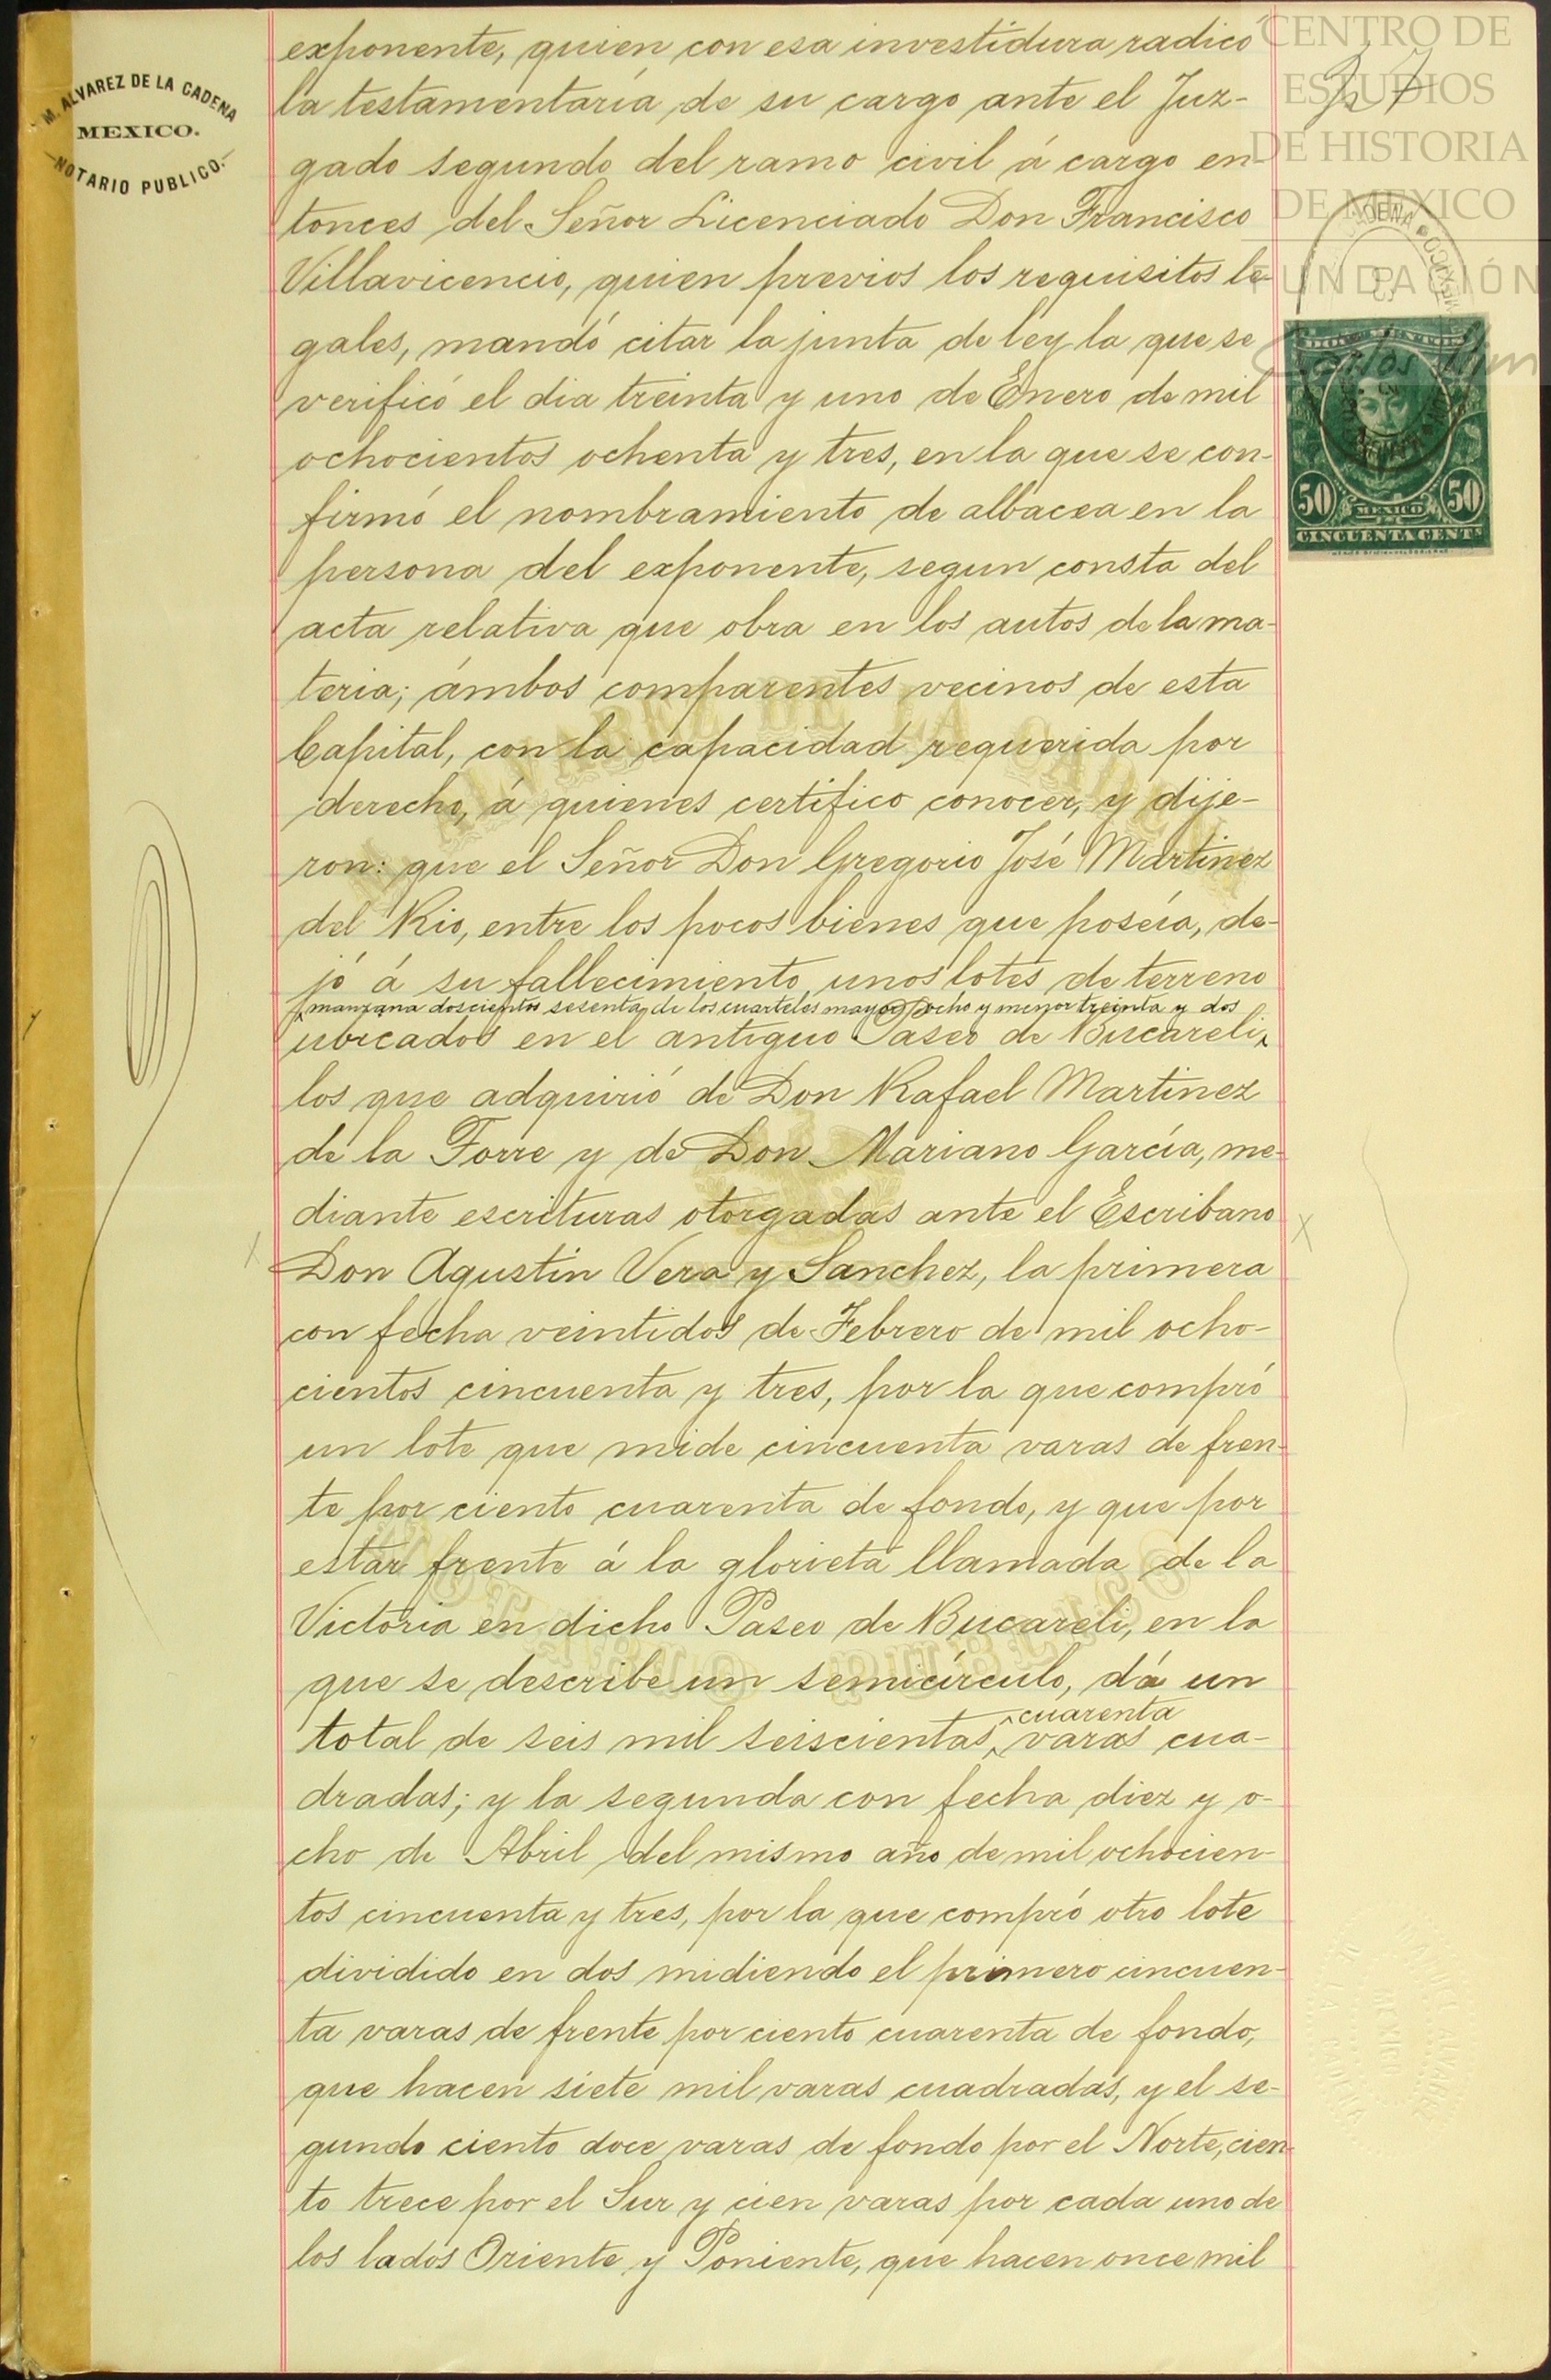 M. ALVAREZ DE LA CADENA
MEXICO.
NOTARIO PUBLICO.
CENTRO DE
ESTUDIOS
DE HISTORIA
DE MEXICO
FUNDACIÓN
27
50 MEXICO 50
CINCUENTA CENTS
exponente, quien con esa investidura radicó
la testamentaría de su cargo ante el Juz-
gado segundo del ramo civil á cargo en
tonces del Señor Licenciado Don Francisco
Villavicencio, quien previos los requisitos le-
gales, mandó citar la junta de ley la que se
verificó el dia treinta y uno de Enero de mil
ochocientos ochenta y tres, en la que se con-
firmó el nombramiento de albacea en la
persona del exponente, segun consta del
acta relativa que obra en los autos de la ma-
teria; ámbos comparentes vecinos de esta
Capital, con la capacidad requerida por
derecho, á quienes certifico conocer, y dije-
ron: que el Señor Don Gregorio José Martinez
del Rio, entre los pocos bienes que poseía, de-
jó á su fallecimiento unos lotes de terreno
manzana doscientos sesenta, de los cuarteles mayor ocho y menor treinta y dos
ubicados en el antiguo Paseo de Bucareli,
los que adquirió de Don Rafael Martinez
de la Torre y de Don Mariano García, me-
diante escrituras otorgadas ante el Escribano
Don Agustin Vera y Sanchez, la primera
con fecha veintidos de Febrero de mil ocho-
cientos cincuenta y tres, por la que compró
un lote que mide cincuenta varas de fren-
te por ciento cuarenta de fondo, y que por
estar frente á la glorieta llamada de la
Victoria en dicho Paseo de Bucareli, en la
que se describe un semicírculo, dá un
cuarenta
total de seis mil seiscientas varas cua-
dradas; y la segunda con fecha diez y o-
cho de Abril del mismo año de mil ochocien-
tos cincuenta y tres, por la que compró otro lote
dividido en dos midiendo el primero cincuen-
ta varas de frente por ciento cuarenta de fondo,
que hacen siete mil varas cuadradas, y el se-
gundo ciento doce varas de fondo por el Norte, cien-
to trece por el Sur y cien varas por cada uno de
los lados Oriente y Poniente, que hacen once mil